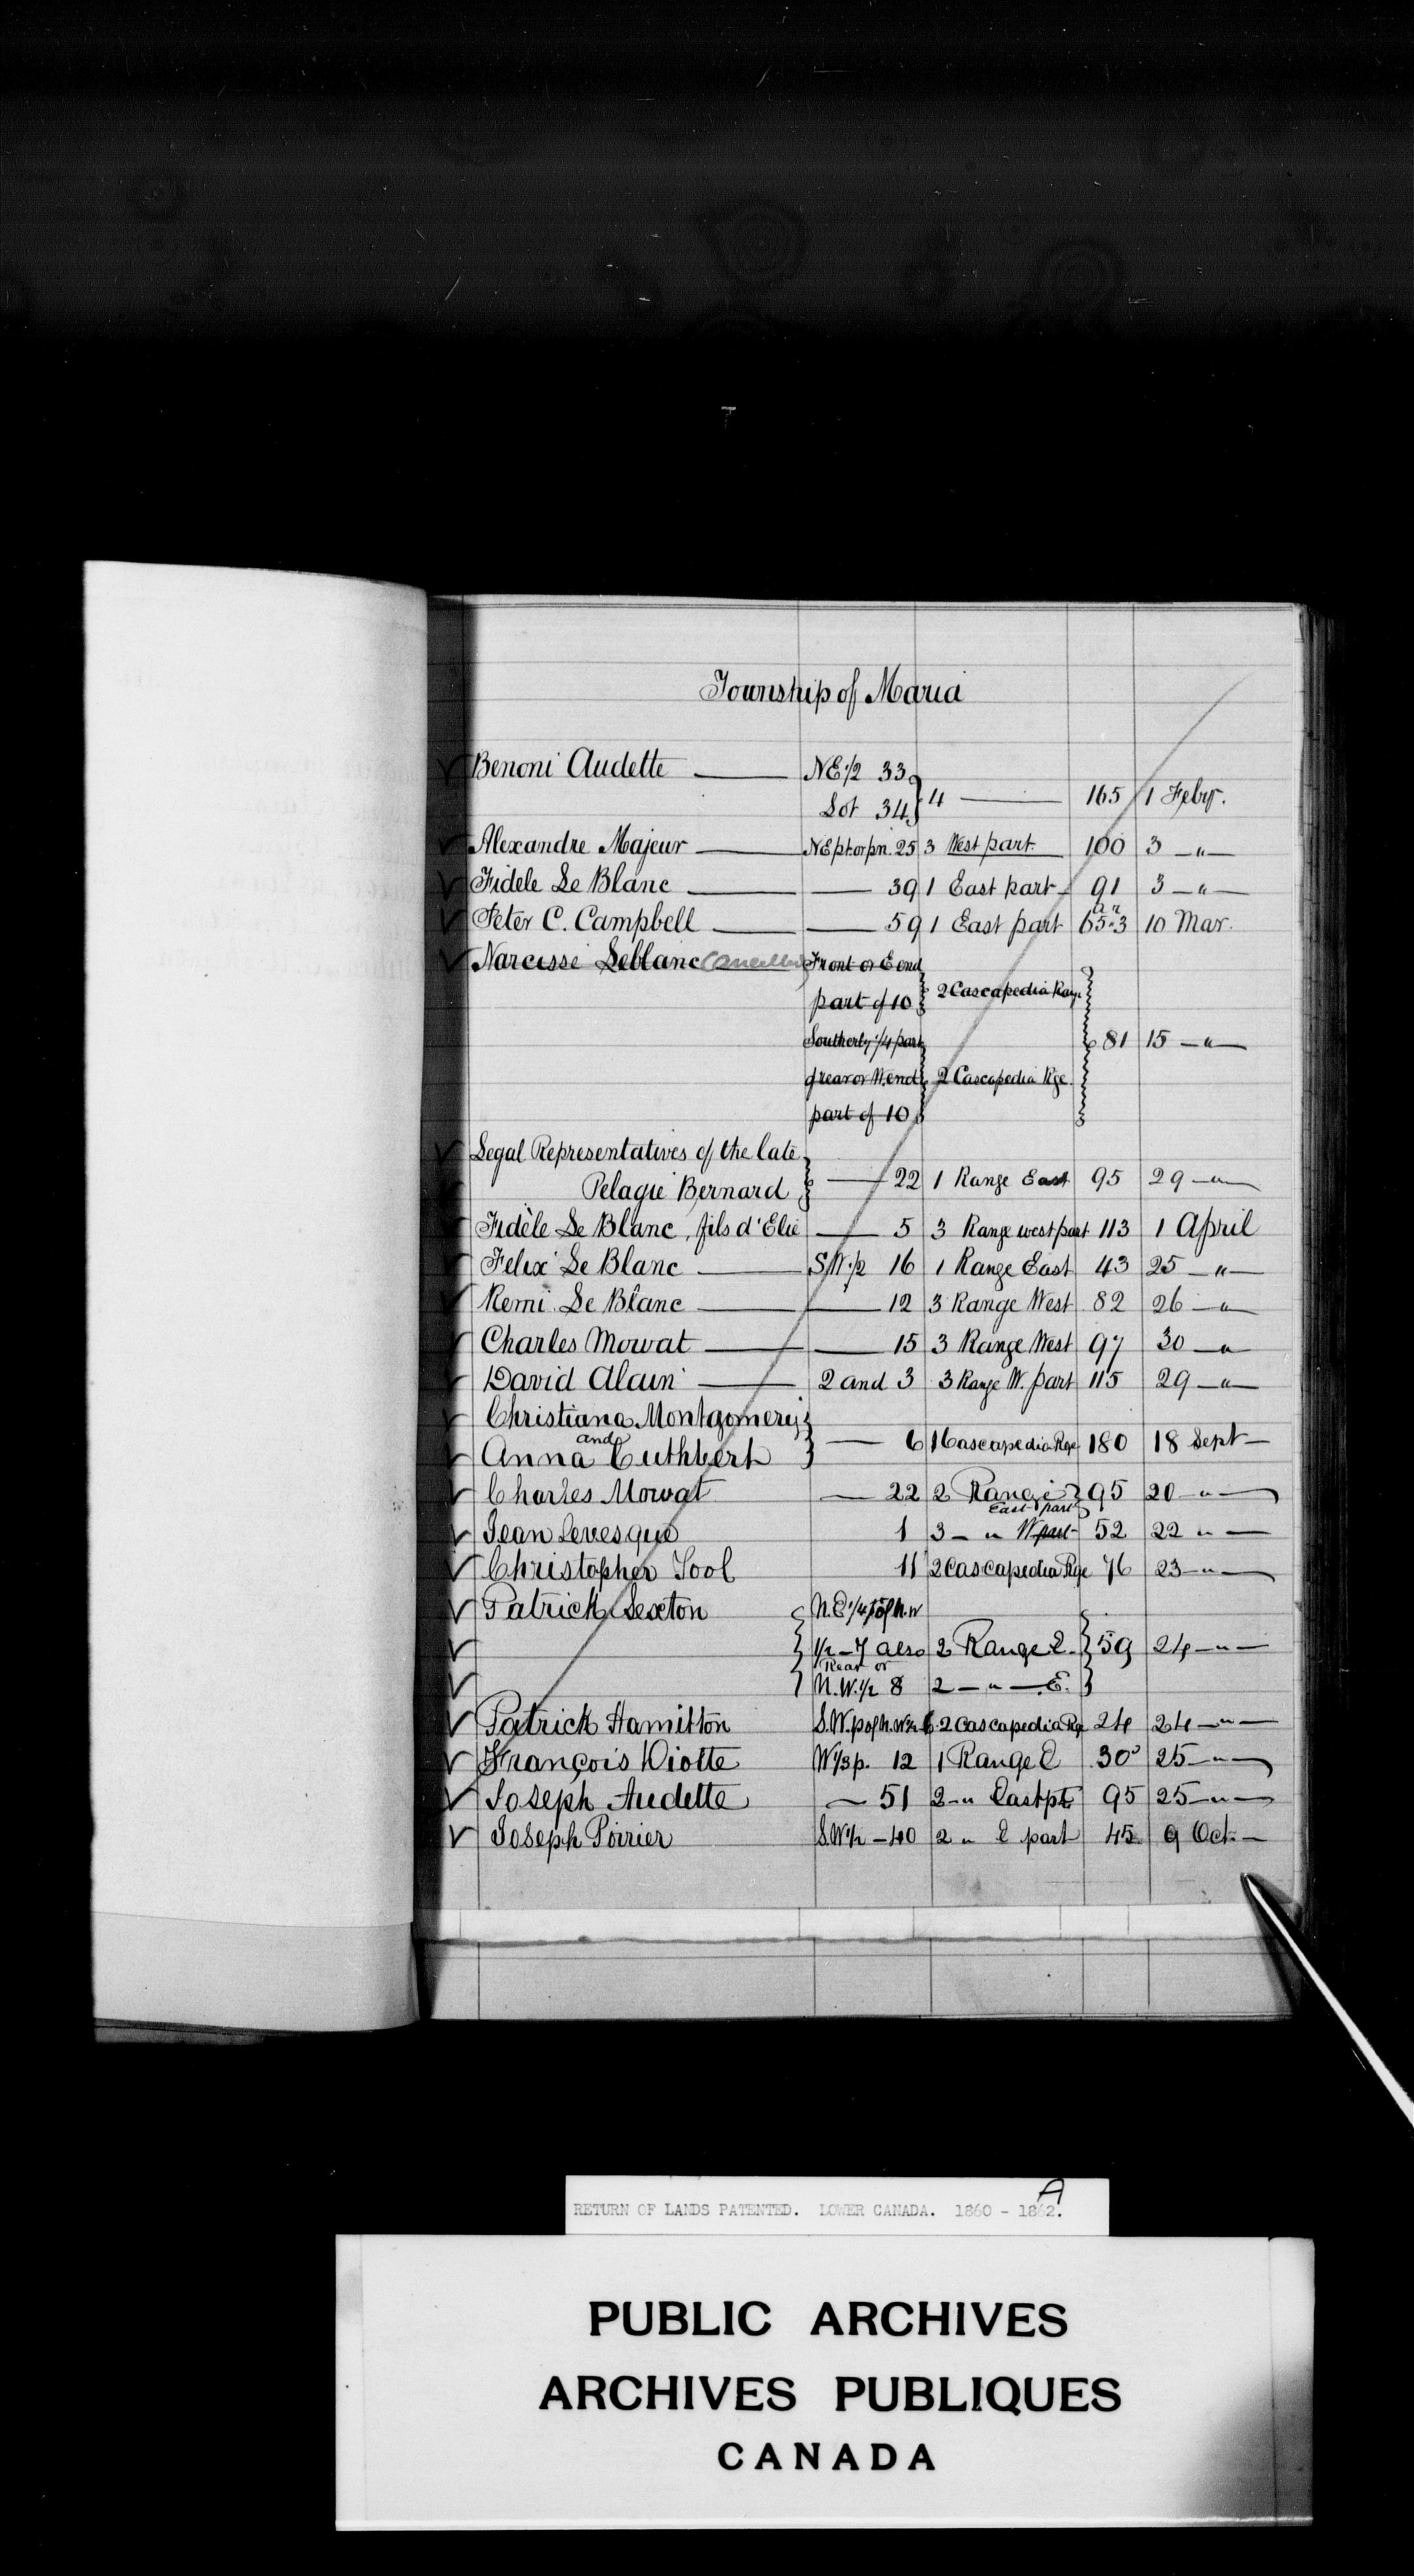 Township of Maria
Benoni Audette — NE 1/2 33
Lot 34 } 4 — 165 1 Feby.
Alexandre Majeur — NE pt. or pn. 25 3 West part. 100 3 — " —
Fidele Le Blanc — — 39 1 East part — 91 3 — " —
Peter C. Campbell — — 59 1 East part 65 a " 3 10 Mar.
Narcisse Leblanc Cancelled Front or E end
part of 10 } 2 Cascapedia Range
Southerly 1/4 part 81 15 — " —
of rear or W. end 2 Cascapedia Rge.
part of 10
Legal Representatives of the late
Pelagie Bernard } — 22 1 Range East 95 29 — " —
Fidèle Le Blanc, fils d'Elie — 5 3 Range west part 113 1 April
Felix Le Blanc — S/W. 1/2 16 1 Range East 43 25 — " —
Remi Le Blanc — — 12 3 Range West 82 26 — " —
Charles Mowat — — 15 3 Range West 97 30 — " —
David Alain — 2 and 3 3 Range W. part 115 29 — " —
Christiana Montgomery
and
Anna Cuthbert } — 6 1 Cascapedia Rge 180 18 Sept —
Charles Mowat — 22 2 Range East part } 95 20 — " —
Jean Levesque 1 3 — " W part — 52 22 " —
Christopher Sool 11 2 Cascapedia Rge 76 23 — " —
Patrick Sexton N.E 1/4 of N.W
1/2 — 7 also 2 Range E — } 59 24 — " —
Rear or
N.W. 1/2 8 2 — " — E.
Patrick Hamilton S.W. p of N.W 1/2 6. 2 Cascapedia Rg 24 24 — " —
François Diotte W 1/3 p. 12 1 Range E 30 25 — " —
Joseph Audette — 51 2 — " East pt 95 25 — " —
Joseph Poirier S.W 1/2 — 40 2 " E part 45 9 Oct —
A
RETURN OF LANDS PATENTED. LOWER CANADA. 1860 - 1862.
PUBLIC ARCHIVES
ARCHIVES PUBLIQUES
CANADA